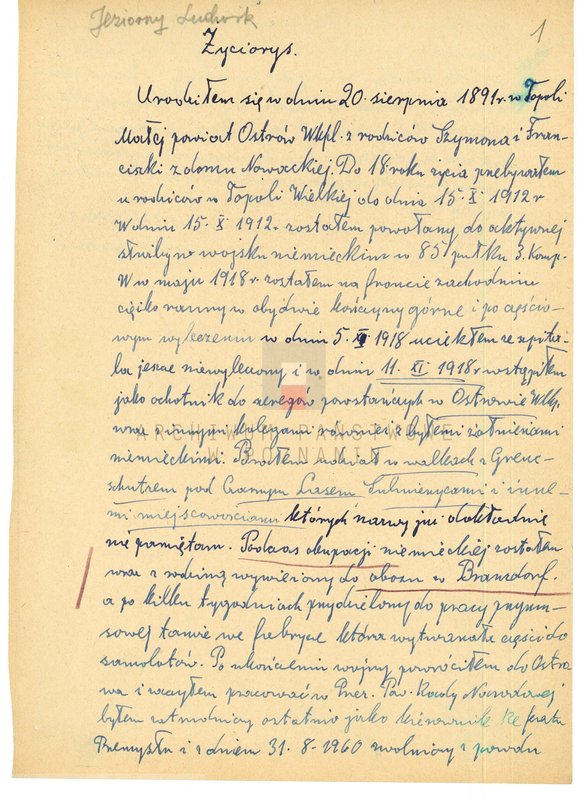 Jeziorny Ludwik
1
Życiorys.
Urodziłem się w dniu 20. sierpnia 1891 r. w Topoli
Małej powiat Ostrów Wlkpl. z rodziców Szymona i Fran-
ciszki z domu Nowackiej. Do 18 roku życia przebywałem
u rodziców w Topoli Wielkiej do dnia 15. X 1912 r
W dniu 15. X 1912. zostałem powołany do aktywnej
służby w wojsku niemieckim w 85 pułku 3. Komp.
W w maju 1918 r. zostałem na froncie zachodnim
ciężko ranny w obydwie kończyny górne i po częścio-
wym wyleczeniu w dniu 5. XI 1918 uciekłem ze szpita-
la jeszcze niewyleczony i w dniu 11. XI 1918 r wstąpiłem
jako ochotnik do szeregów powstańczych w Ostrowie Wlkp.
wraz z innymi kolegami również z byłemi żołnierzami
niemieckimi. Brałem udział w walkach z Grenc-
schutzem pod Czarnym Lasem Sulmierzycami i inne-
mi miejscowościami których nazwy już dokładnie
nie pamiętam. Podczas okupacji niemieckiej zostałem
wraz z rodziną wywieziony do obozu w Bransdorf.
a po kilku tygodniach przydzielony do pracy przymu-
sowej tamże we fabryce która wytwarzała części do
samolotów. Po ukończeniu wojny powróciłem do Ostro
wa i zacząłem pracować w Prez. Pow. Rady Narodowej
byłem zatrudniony ostatnio jako kierownik Referatu
Przemysłu i z dniem 31. 8. 1960 zwolniony z powodu
ARCHIWUM PAŃSTWOWE
W POZNANIU